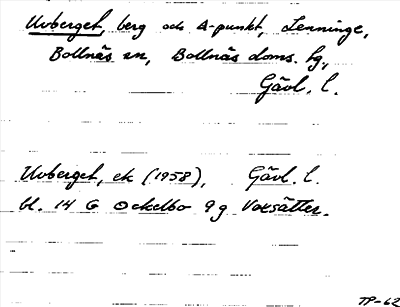 Uvberget, berg och Δ-punkt, Lenninge,
Bollnäs sn, Bollnäs doms. hg,
Gävl. l.
Uvberget, ek (1958), Gävl. l.
bl. 14 G Ockelbo 9g Voxsätter.
TP-62